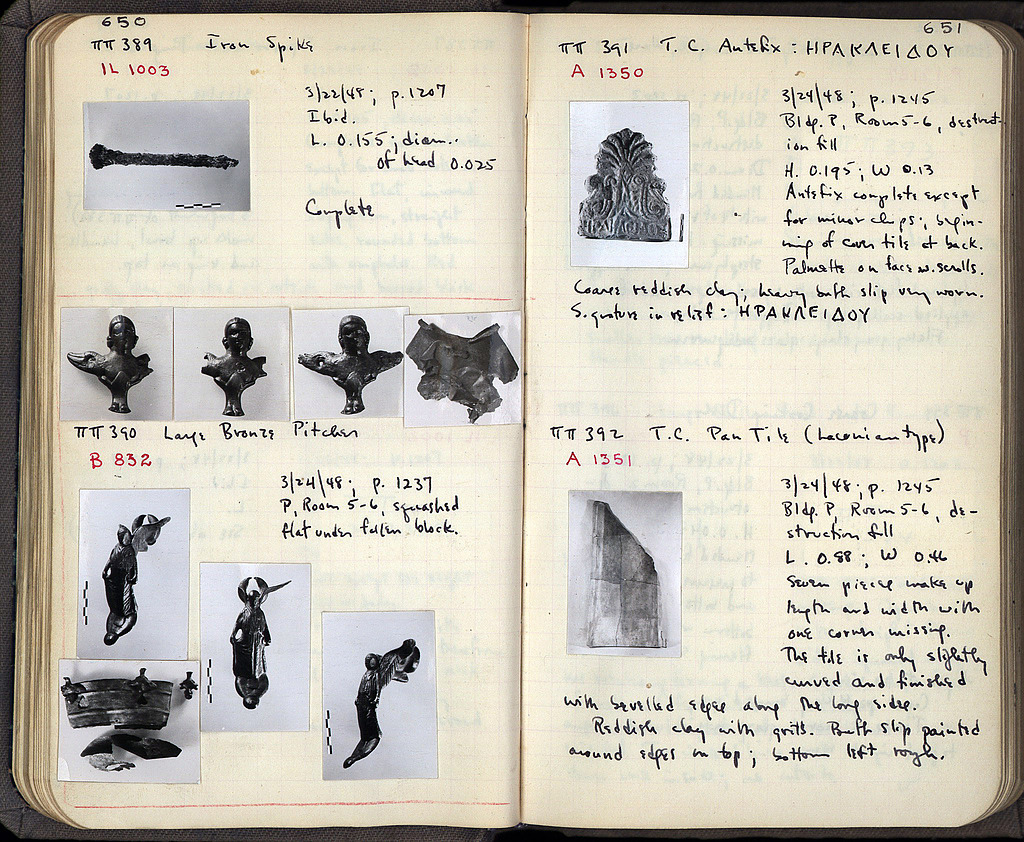 650
ΠΠ 389 Iron Spike
IL 1003
3/22/48; p. 1207
Ibid.
L. 0.155; diam.
of head 0.025
Complete
ΠΠ 390 Large Bronze Pitcher
B 832
3/24/48; p. 1237
P, Room 5-6, squashed
flat under fallen block.
651
ΠΠ 391 T.C. Antefix: ΗΡΑΚΛΕΙΔΟΥ
A 1350
3/24/48; p. 1245
Bldg. P, Room 5-6, destruct-
ion fill
H. 0.195; W 0.13
Antefix complete except
for minor chips; begin-
ning of cover tile at back.
Palmette on face w. scrolls.
Coarse reddish clay; heavy buff slip very worn.
Signature in relief: ΗΡΑΚΛΕΙΔΟΥ
ΠΠ 392 T.C. Pan Tile (Laconian type)
A 1351
3/24/48; p. 1245
Bldg. P, Room 5-6, de-
struction fill
L. 0.88; W 0.46
Seven pieces make up
length and width with
one corner missing.
The tile is only slightly
curved and finished
with bevelled edges along the long sides.
Reddish clay with grits. Buff slip painted
around edges on top; bottom left rough.